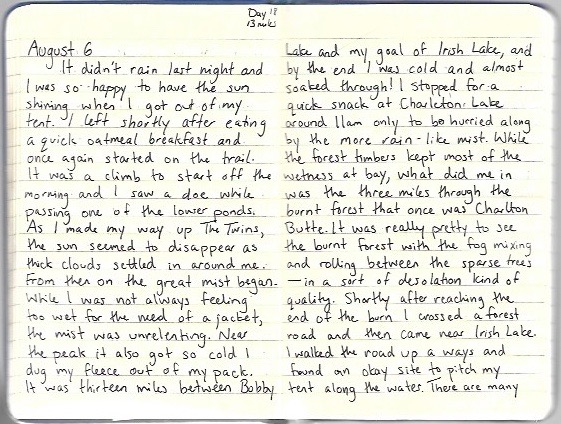 Day 18
13 miles
August 6
It didn't rain last night and
I was so happy to have the sun
shining when I got out of my
tent. I left shortly after eating
a quick oatmeal breakfast and
once again started on the trail.
It was a climb to start off the
morning and I saw a doe while
passing one of the lower ponds.
As I made my way up The Twins,
the sun seemed to disappear as
thick clouds settled in around me.
From then on the great mist began.
While I was not always feeling
too wet for the need of a jacket,
the mist was unrelenting. Near
the peak it also got so cold I
dug my fleece out of my pack.
It was thirteen miles between Bobby
Lake and my goal of Irish Lake, and
by the end I was cold and almost
soaked through! I stopped for a
quick snack at Charleton Lake
around 11am only to be hurried along
by the more rain-like mist. While
the forest timbers kept most of the
wetness at bay, what did me in
was the three miles through the
burnt forest that once was Charlton
Butte. It was really pretty to see
the burnt forest with the fog mixing
and rolling between the sparse trees
— in a sort of desolation kind of
quality. Shortly after reaching the
end of the burn I crossed a forest
road and then came near Irish Lake.
I walked the road up a ways and
found an okay site to pitch my
tent along the water. There are many